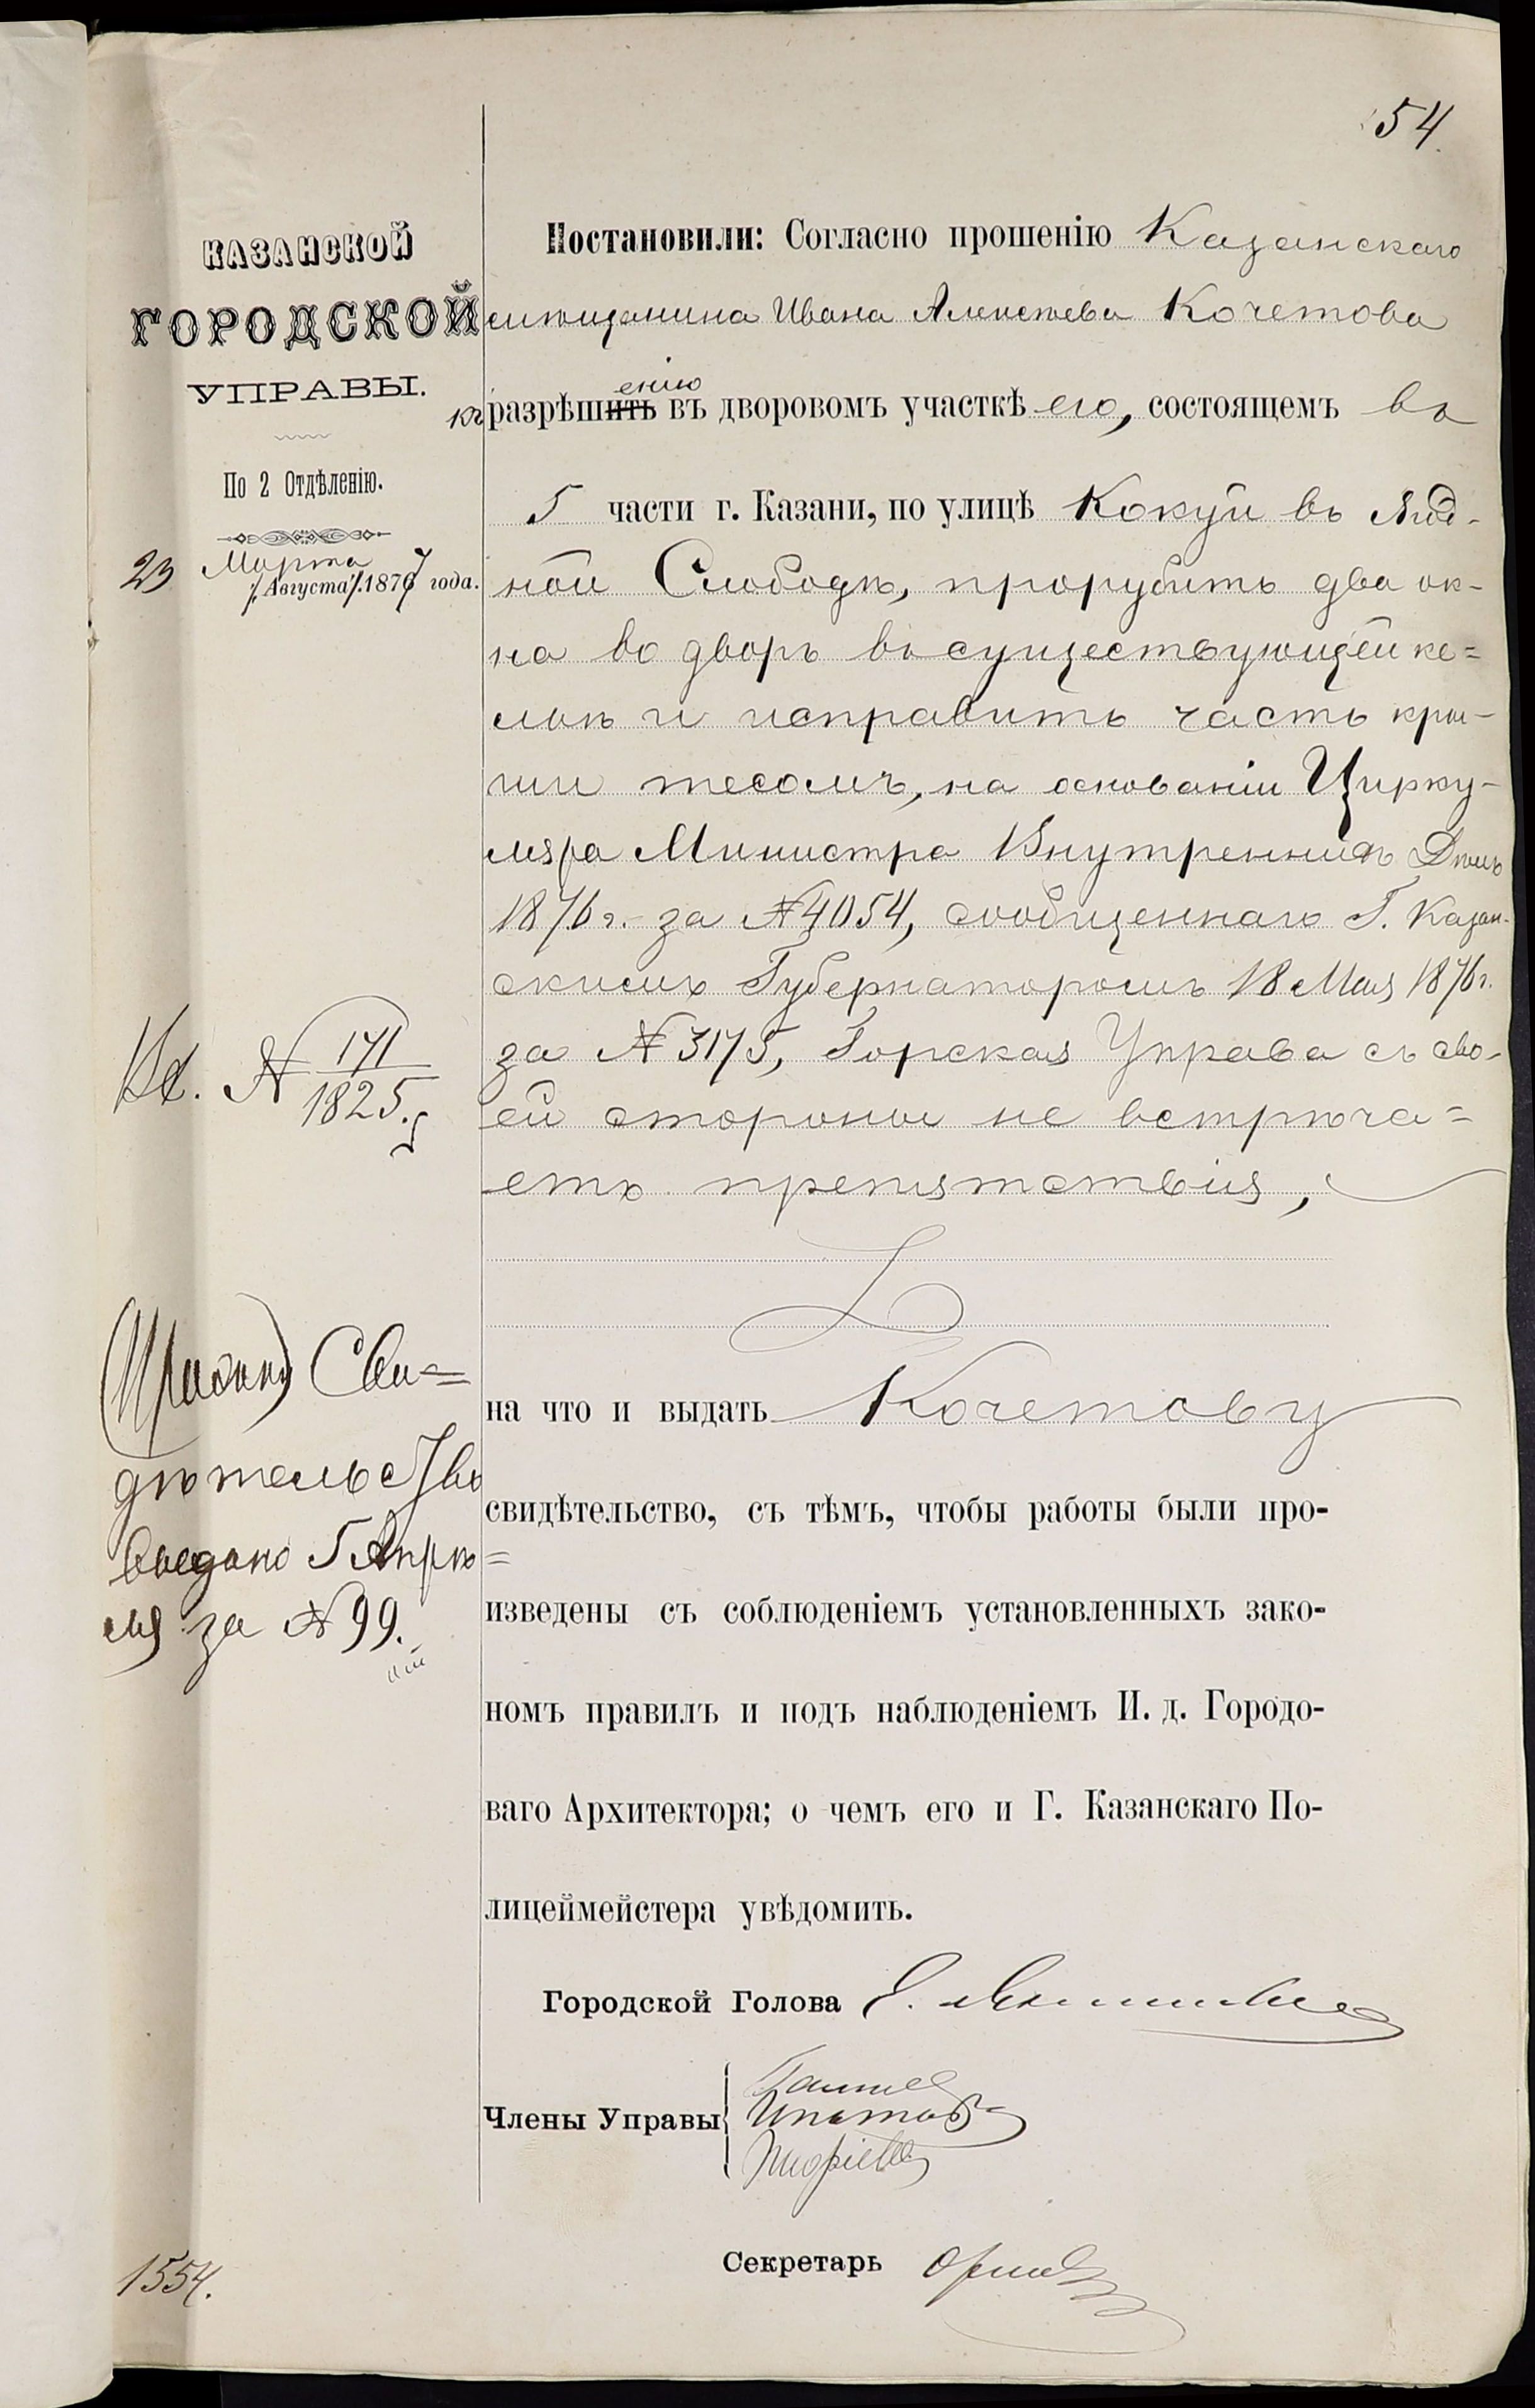 54.
КАЗАНСКОЙ
ГОРОДСКОЙ
УПРАВЫ.
По 2 Отдѣленію.
23 Марта
Августа 1877 года.
Вх. № 171/1825.
Свидѣтельство
выдано 5 Апрѣ=
ля за № 99.
1554.
Постановили: Согласно прошенію Казанскаго
мѣщанина Ивана Алексѣева Кочетова
къ разрѣшить енію въ дворовомъ участкѣ его, состоящемъ въ
5 части г. Казани, по улицѣ Кокуй въ Ягод-
ной Слободѣ, прорубить два ок-
на во дворъ въ существующей ке=
льѣ и исправить часть кры-
ши тесомъ, на основаніи Цирку-
ляра Министра Внутреннихъ Дѣлъ
1876 г. за № 4054, сообщеннаго Г. Казан-
скимъ Губернаторомъ 18 Мая 1876 г.
за № 3175, Горская Управа съ сво-
ей стороны не встрѣча=
етъ препятствія,
на что и выдать Кочетову
свидѣтельство, съ тѣмъ, чтобы работы были про-
изведены съ соблюденіемъ установленныхъ зако-
номъ правилъ и подъ наблюденіемъ И. д. Городо-
ваго Архитектора; о чемъ его и Г. Казанскаго По-
лицеймейстера увѣдомить.
Городской Голова
Члены Управы
Ипатовъ
Секретарь